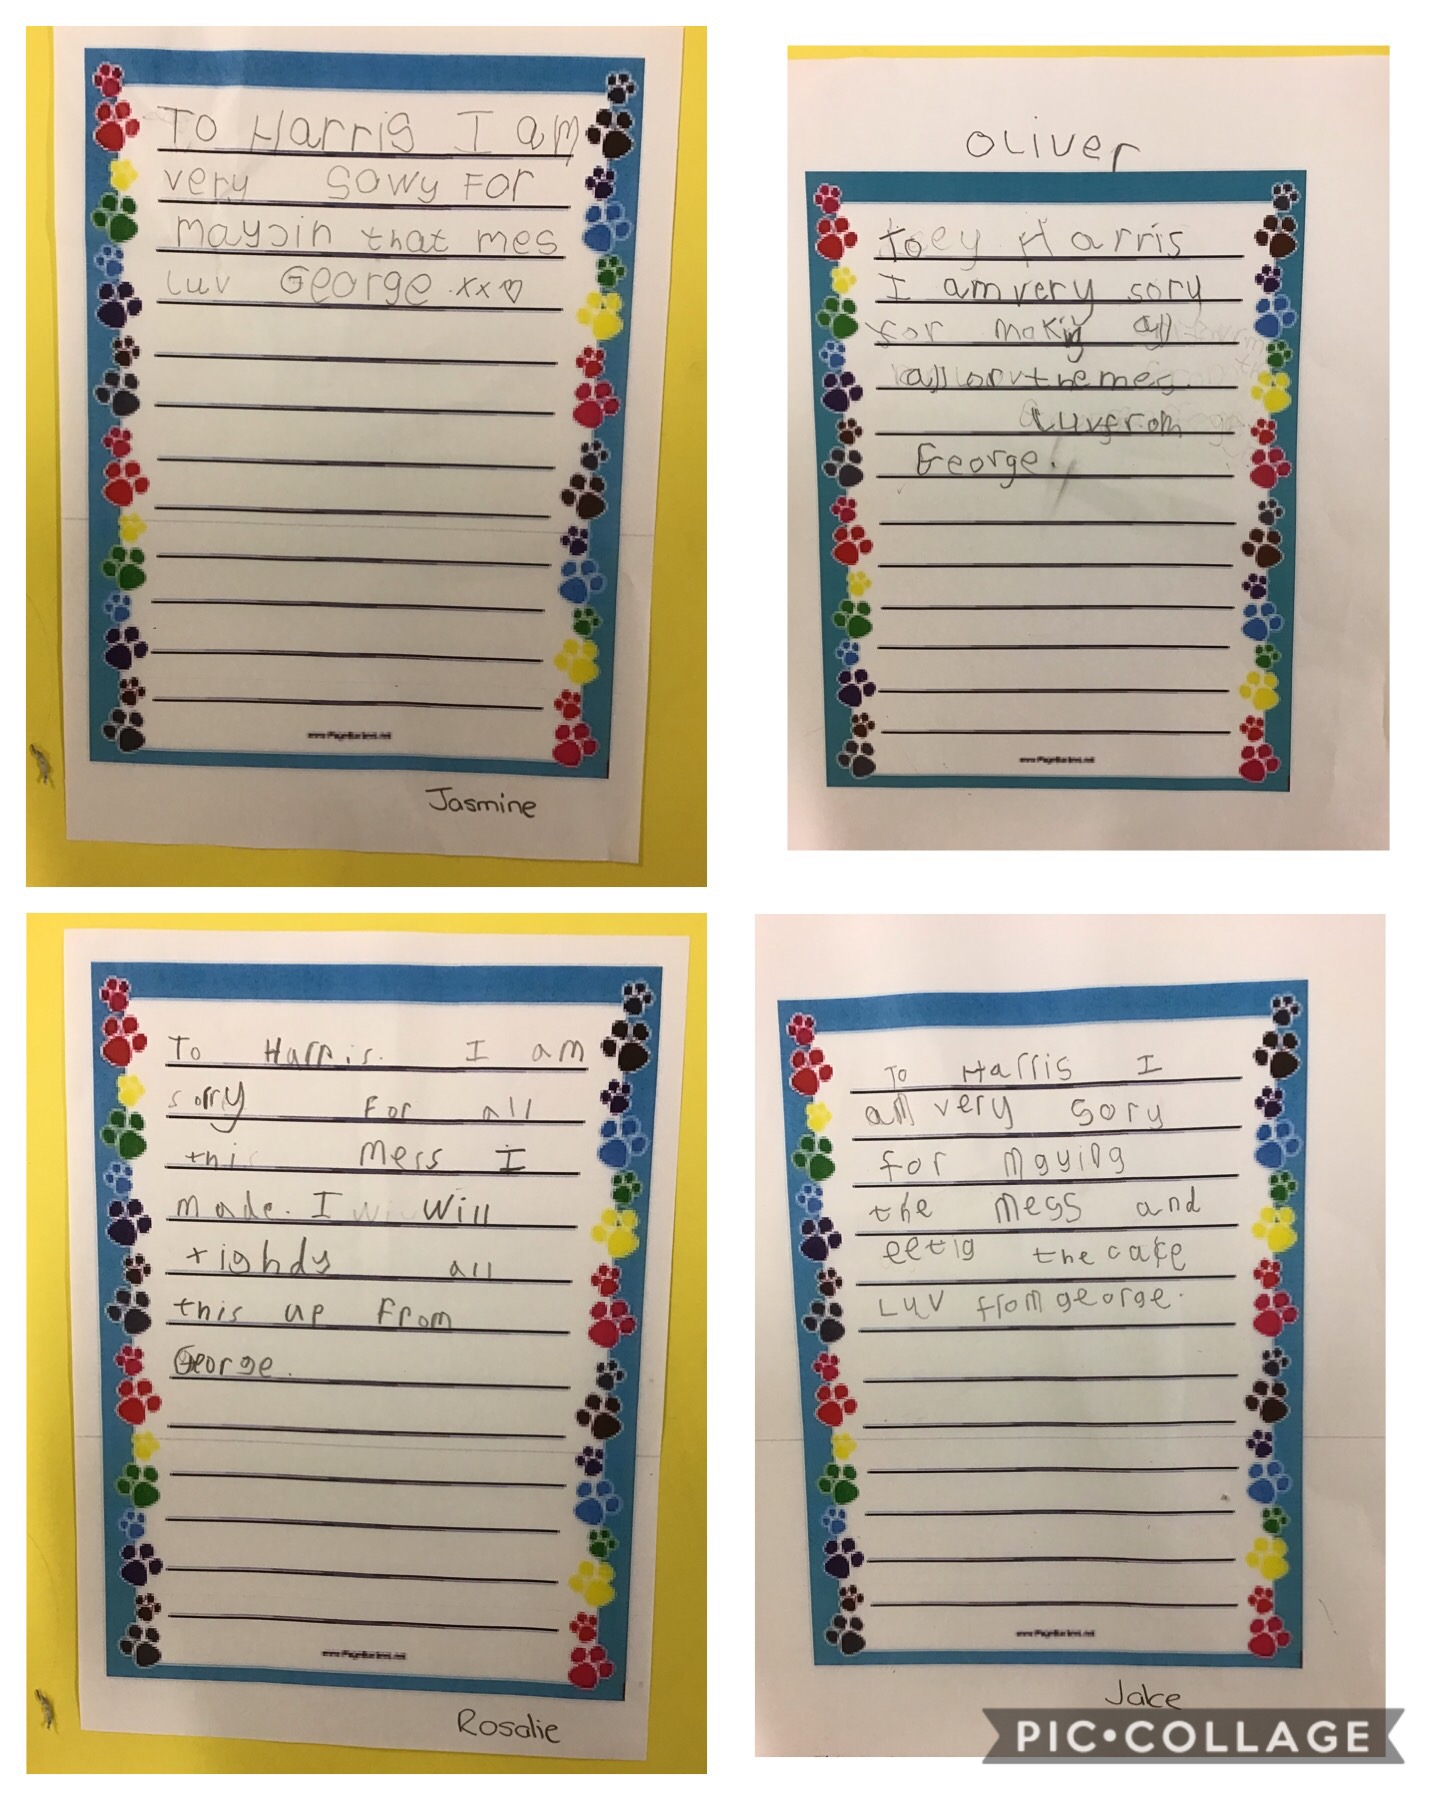 To Harris I am
very sowy For
maycin that mes
luv George.xx♡
www.PageBorders.net
Jasmine
Oliver
To Harris
I am very sory
for making all
all or the mes.
Luv from
George.
www.PageBorders.net
To Harris. I am
sorry For all
this Mess I
made. I will
tighdy all
this up From
George.
www.PageBorders.net
Rosalie
To Harris I
am very Sory
for maying
the mess and
eetig the cake
Luv from george.
www.PageBorders.net
Jake
PIC•COLLAGE